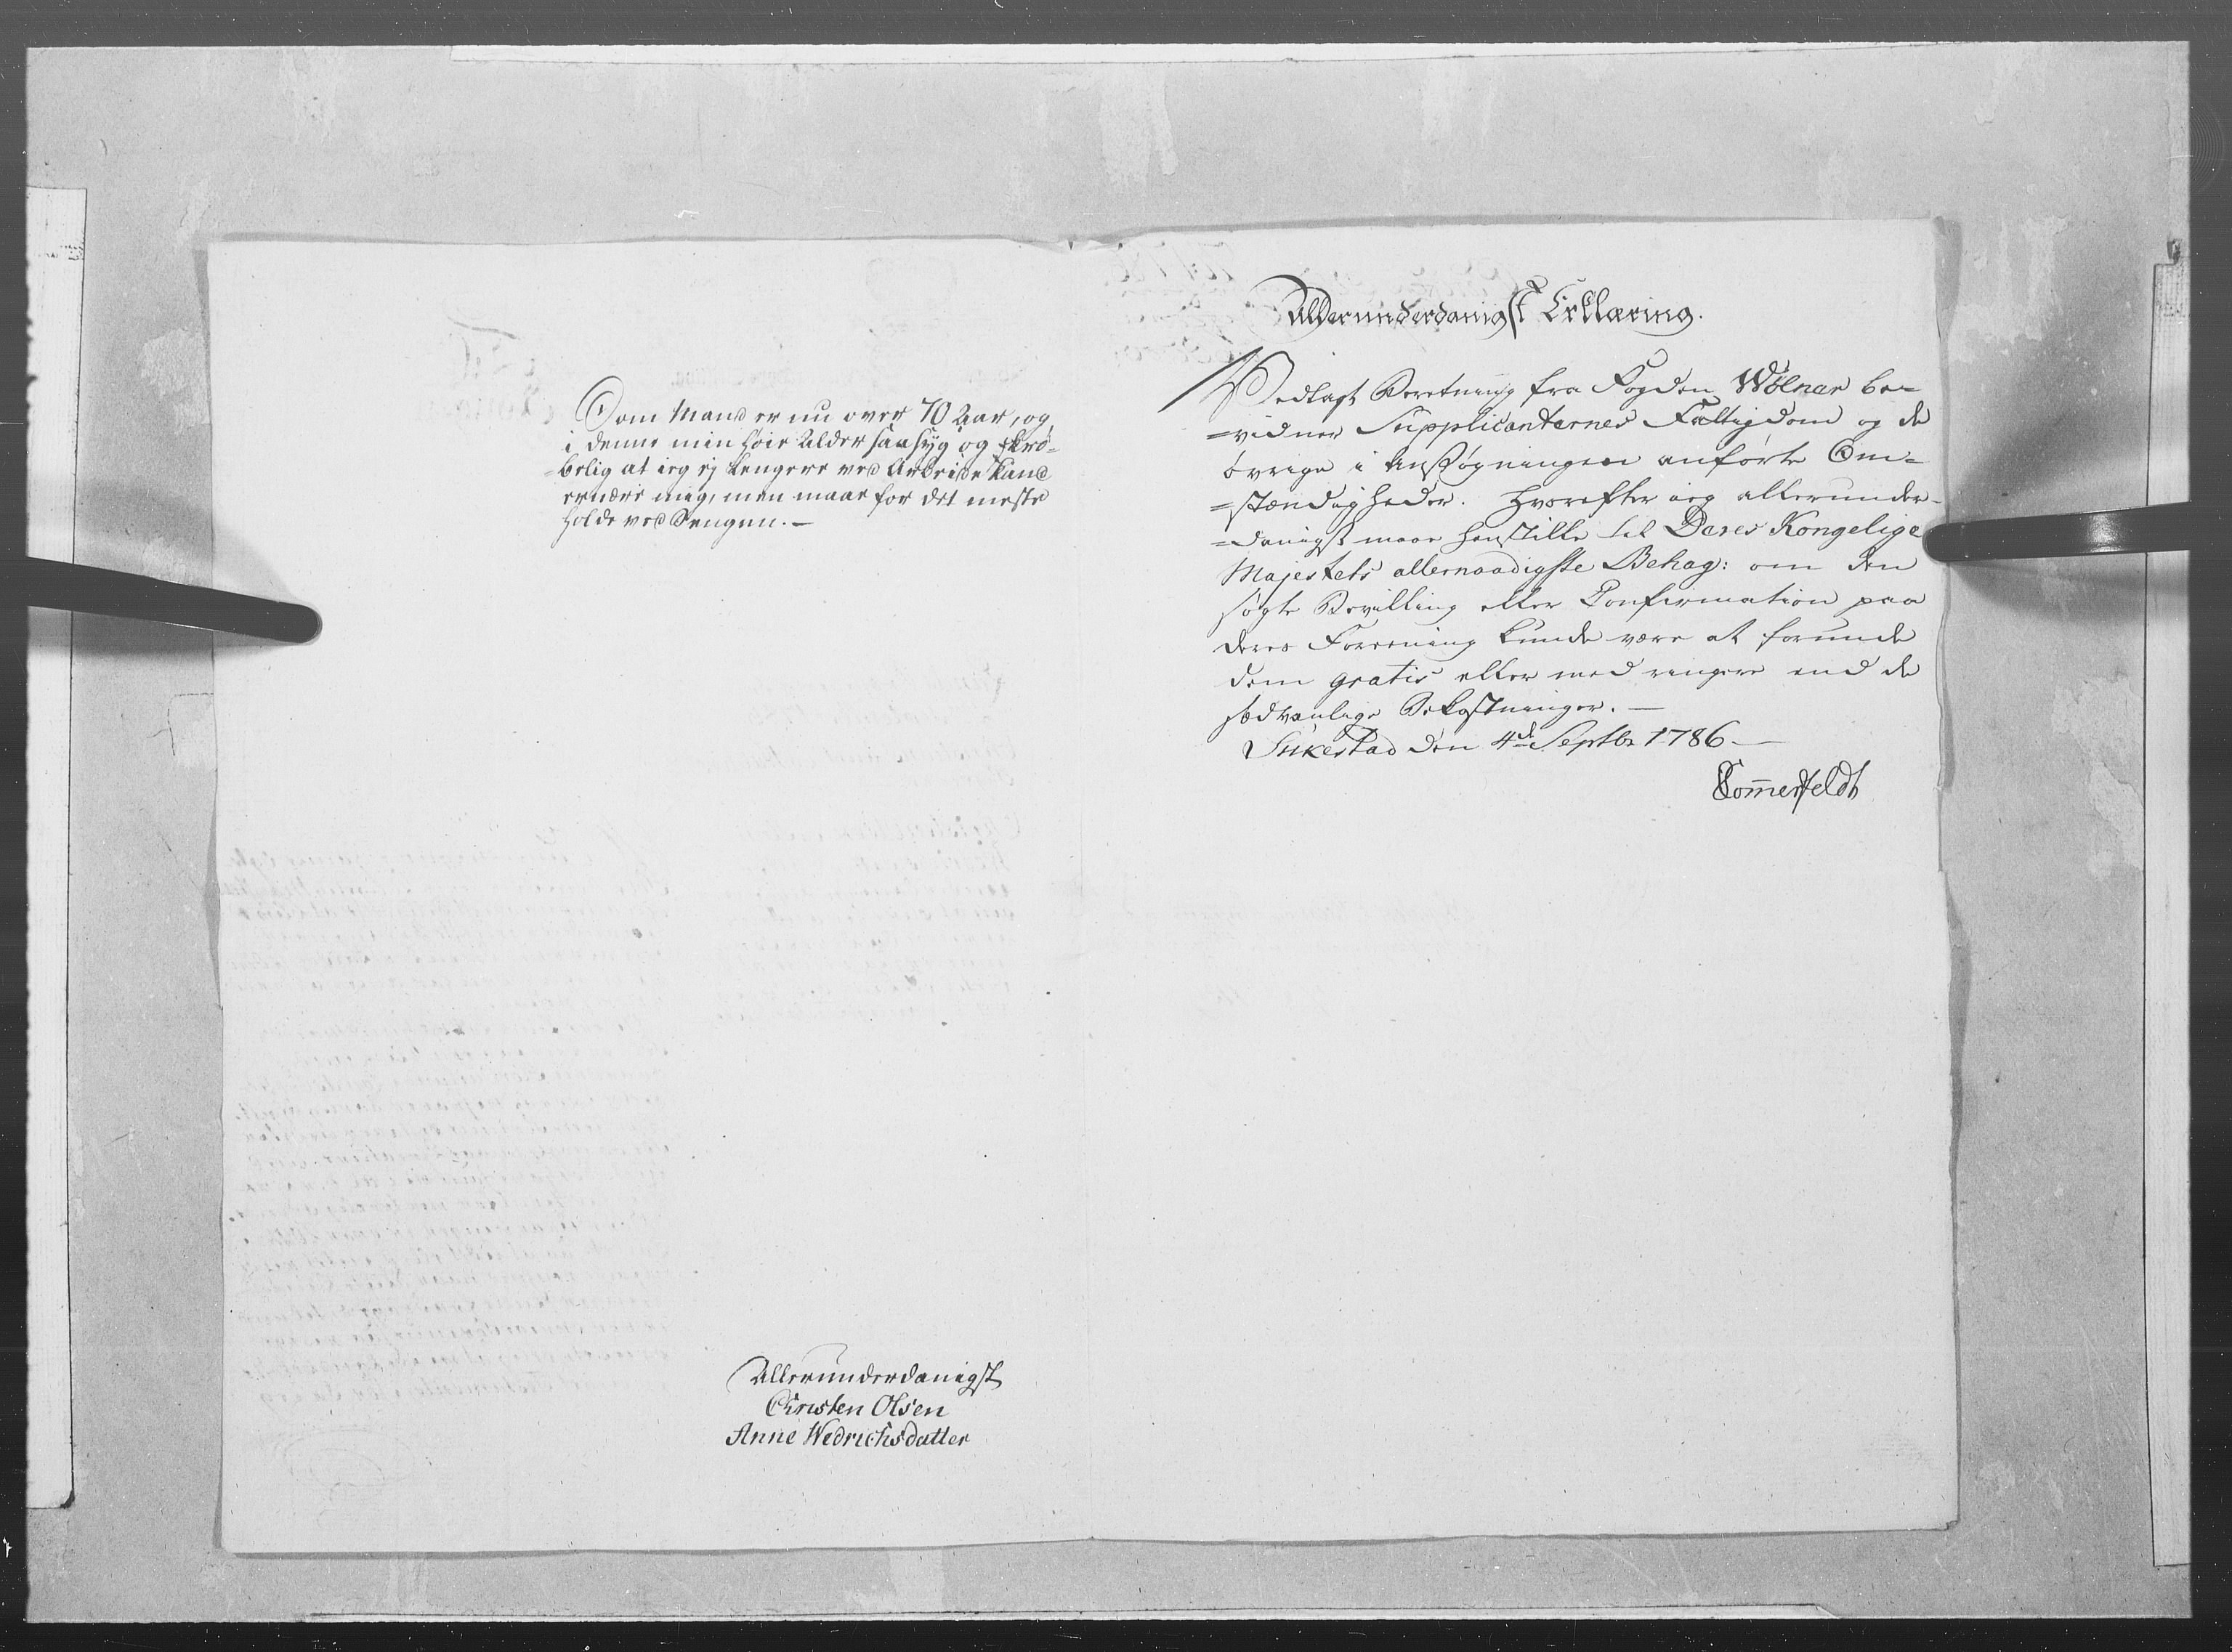 Som Mand er nu over 70 Aar, og
i denne min høie Alder saa syg og skrø-
-belig at ieg ej længere ved Arbeide kand
ernære mig, men maae for det meste
holde ved Sengen.-
Allerunderdanigst
Christen Olsen
Anne Hedrichsdatter
Allerunderdanigst Erklæring.
Vedlagt Beretning fra Fogden Wølner be-
-vidner Supplicanternes Fattigdom og de
øvrige i Ansøgningen anførte Om-
-stændigheder. Hvorefter ieg allerunder-
-danigst maae henstille til Deres Kongelige
Majestets allernaadigste Behag: om den
søgte Bevilling eller Confirmation paa
deres Forening kunde være at forunde
dem gratis eller med ringere end de
sædvanlige Bekostninger.-
Sukestad den 4de Septbr 1786-
Sommerfeldt